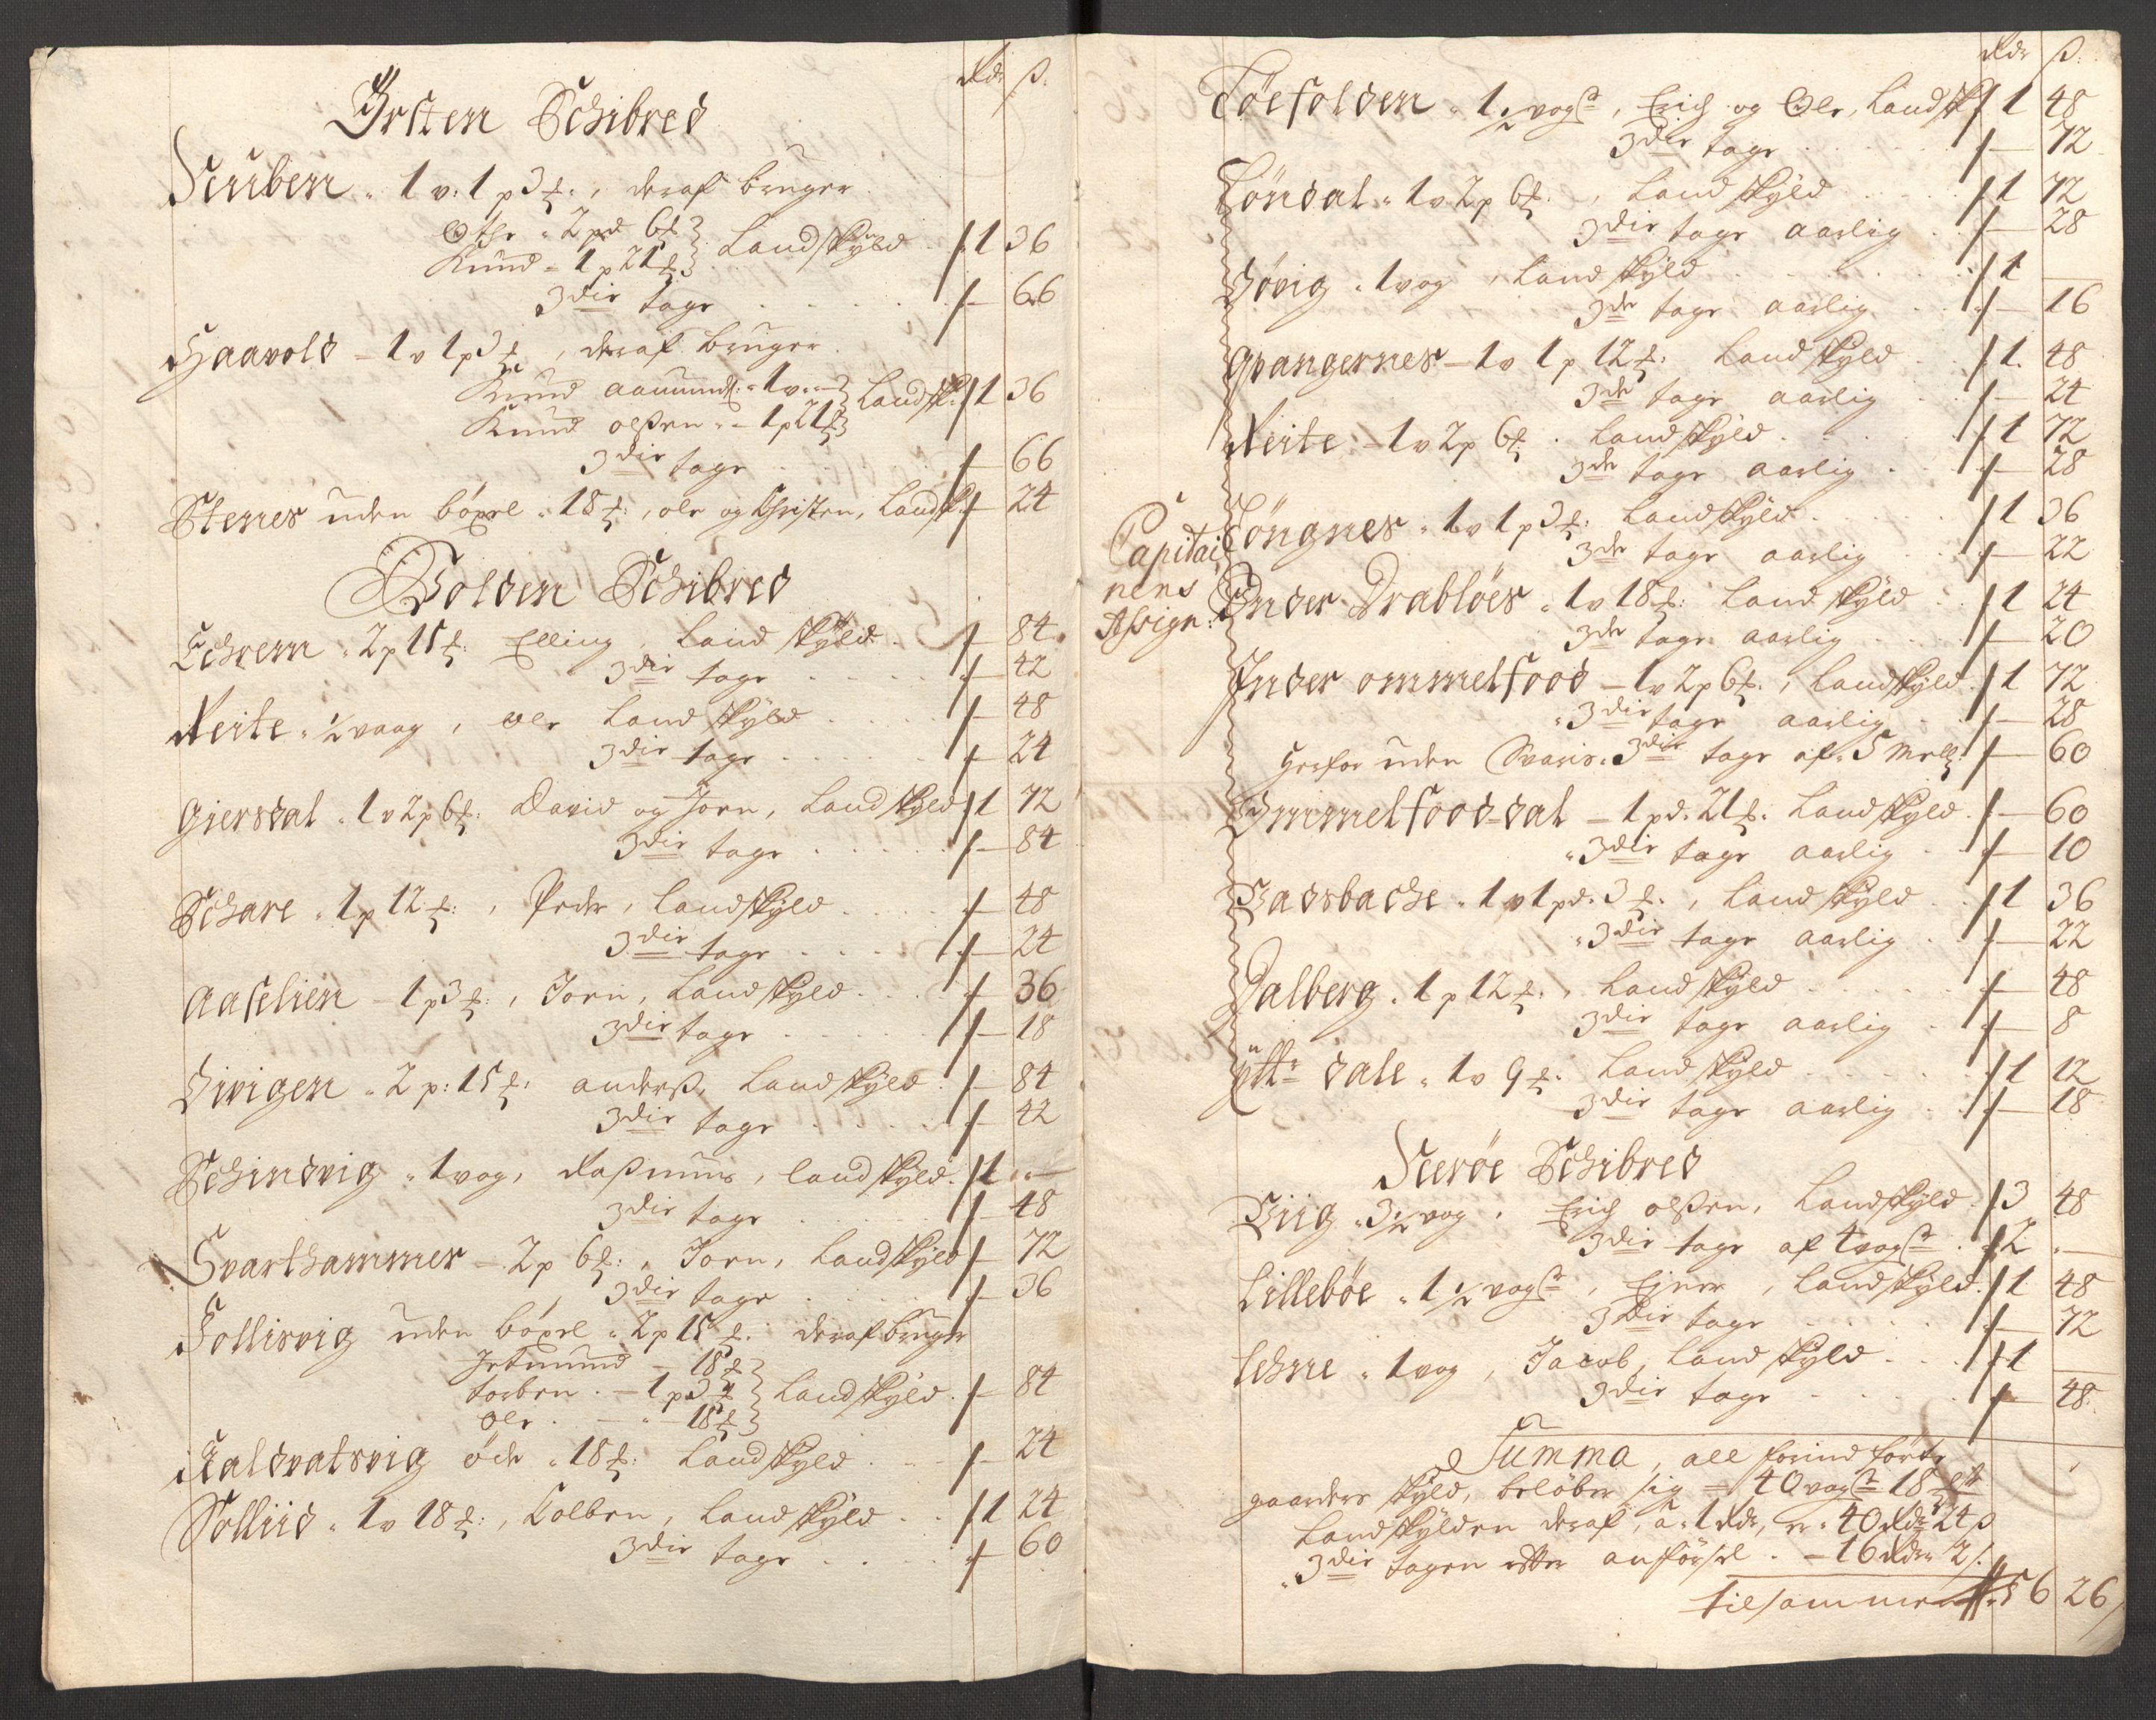 Rdr ß.
Ørsten Schibred
Stuben 1 v: 1 p 3 ℔:, deraf bruger
Othe 2 pd 6 ℔
Knud 1 p 21 ℔ Landskyld 1 36
3die tage 66
Haavold 1 v 1 p 3 ℔, deraf bruger
Knud Aamunds. 1 v.
Knud olßen 1 p 21 ℔ Landsk: 1 36
3die tage 66
Stenes uden böxel 18 ℔:, ole og Christen, Landsk. 24
Volden Schibred
Echrem 2 p 15 ℔: Elling, Land skyld 84
3die tage 42
Neite ½ vaag, ole Land skyld 48
3die tage 24
Giersdal 1 v 2 p 6 ℔: David og Jorn, Landskyld 1 72
3die tage 84
Schare 1 p 12 ℔:, Peder, Landskyld 48
3die tage 24
Aaselien 1 p 3 ℔:, Jorn, Landskyld 36
3die tage 18
Divigen 2 p: 15 ℔: anderß, Landskyld 84
3die tage 42
Schindvig 1 vog, Raßmus, landskyld 1 —
3die tage 48
Svarthammer 2 p 6 ℔:, Jorn, Landskyld 72
3die tage 36
Follisvig uden böxel 2 p 15 ℔. deraf bruger
Jetmund 18 ℔
torben 1 p 3 ℔ Landskyld 84
Ole 18 ℔
Kaldvatsvig öde 18 ℔: Landskyld 24
Solliid 1 v 18 ℔:, Colben, Landskyld 1 24
3die tage 60
Rdr ß:
Föefolden 1 ½ vogr, Erich og Ole, Landsk 1 48
3die tage 72
Löndal 1 v 2 p 6 ℔:, Landskyld 1 72
3die tage aarlig 28
Høvig 1 vog, Landskyld 1
3de tage aarlig 16
Gvangernes 1 v 1 p 12 ℔: Landskyld 1 48
3de tage aarlig 24
Neite 1 v 2 p 6 ℔. Landskyld 1 72
3de tage aarlig 28
Capitai
nens
Assign:
Töngnes 1 v 1 p 3 ℔: Landskyld 1 36
3de tage aarlig 22
Inder Drabløes 1 v 18 ℔: Landskyld 1 24
3de tage aarlig 20
Inder ommelfood 1 v 2 p 6 ℔., Landskyld 1 72
3die tage aarlig 28
herfor uden Svaris 3die tage af 5 Mell 60
Ommelfood-dal 1 pd. 21 ℔. Landskyld 60
3die tage aarlig 10
Badsbache 1 v 1 pd. 3 ℔., Landskyld 1 36
3die tage aarlig 22
Dalberg 1 p 12 ℔:, Landskyld 48
3die tage aarlig 8
ytt: dale 1 v 9 ℔: Landskyld 1 12
3die tage aarlig 18
Sterøe Schibred
Viig 3 ½ vog, Erich olßen, Landskyld 3 48
3die tage af 4 vogr 2 —
Lillebøe 1 ½ vogr, Ejner, Landskyld 1 48
3die tage 72
Lehne 1 vog, Jacob, Landskyld 1
3die tage 48
Summa, all forind førte
gaarders skyld, beløber sig = 40 vogr 18 ℔
Landskylden deraf, a 1 Rdr, er 40 Rdr 24 ß
3die tagen efter anførsel 16 Rdr 2 ß.
tilsammen 56 26